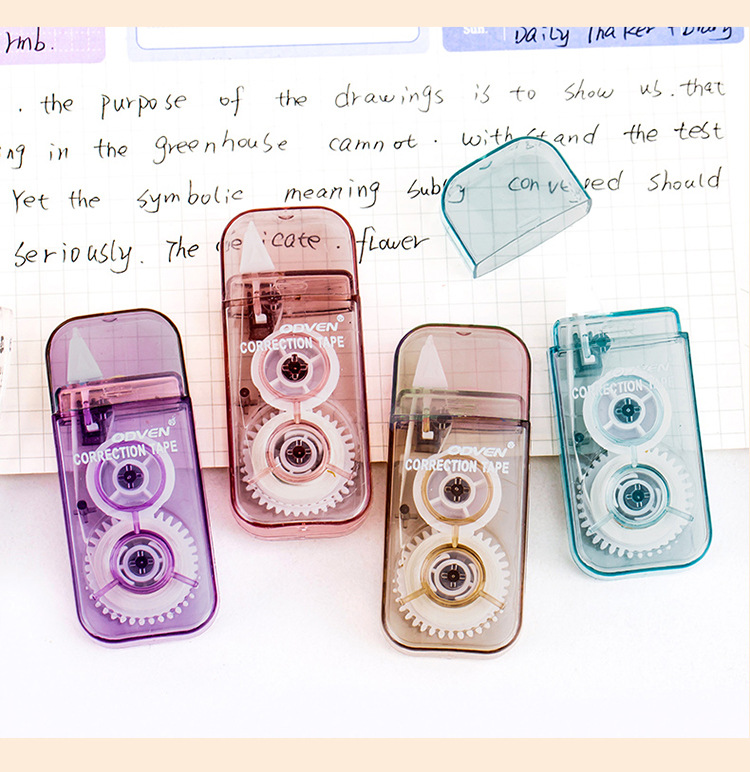 rmb.
Sun. Daily Thaker + Diary
. the purpose of the drawings is to show us. that
ng in the greenhouse camnot. withstand the test
Yet the symbolic meaning should
seriously. The delicate. flower
ODVEN®
CORRECTION TAPE
ODVEN®
CORRECTION TAPE
ODVEN®
CORRECTION TAPE
CORRECTION TAPE